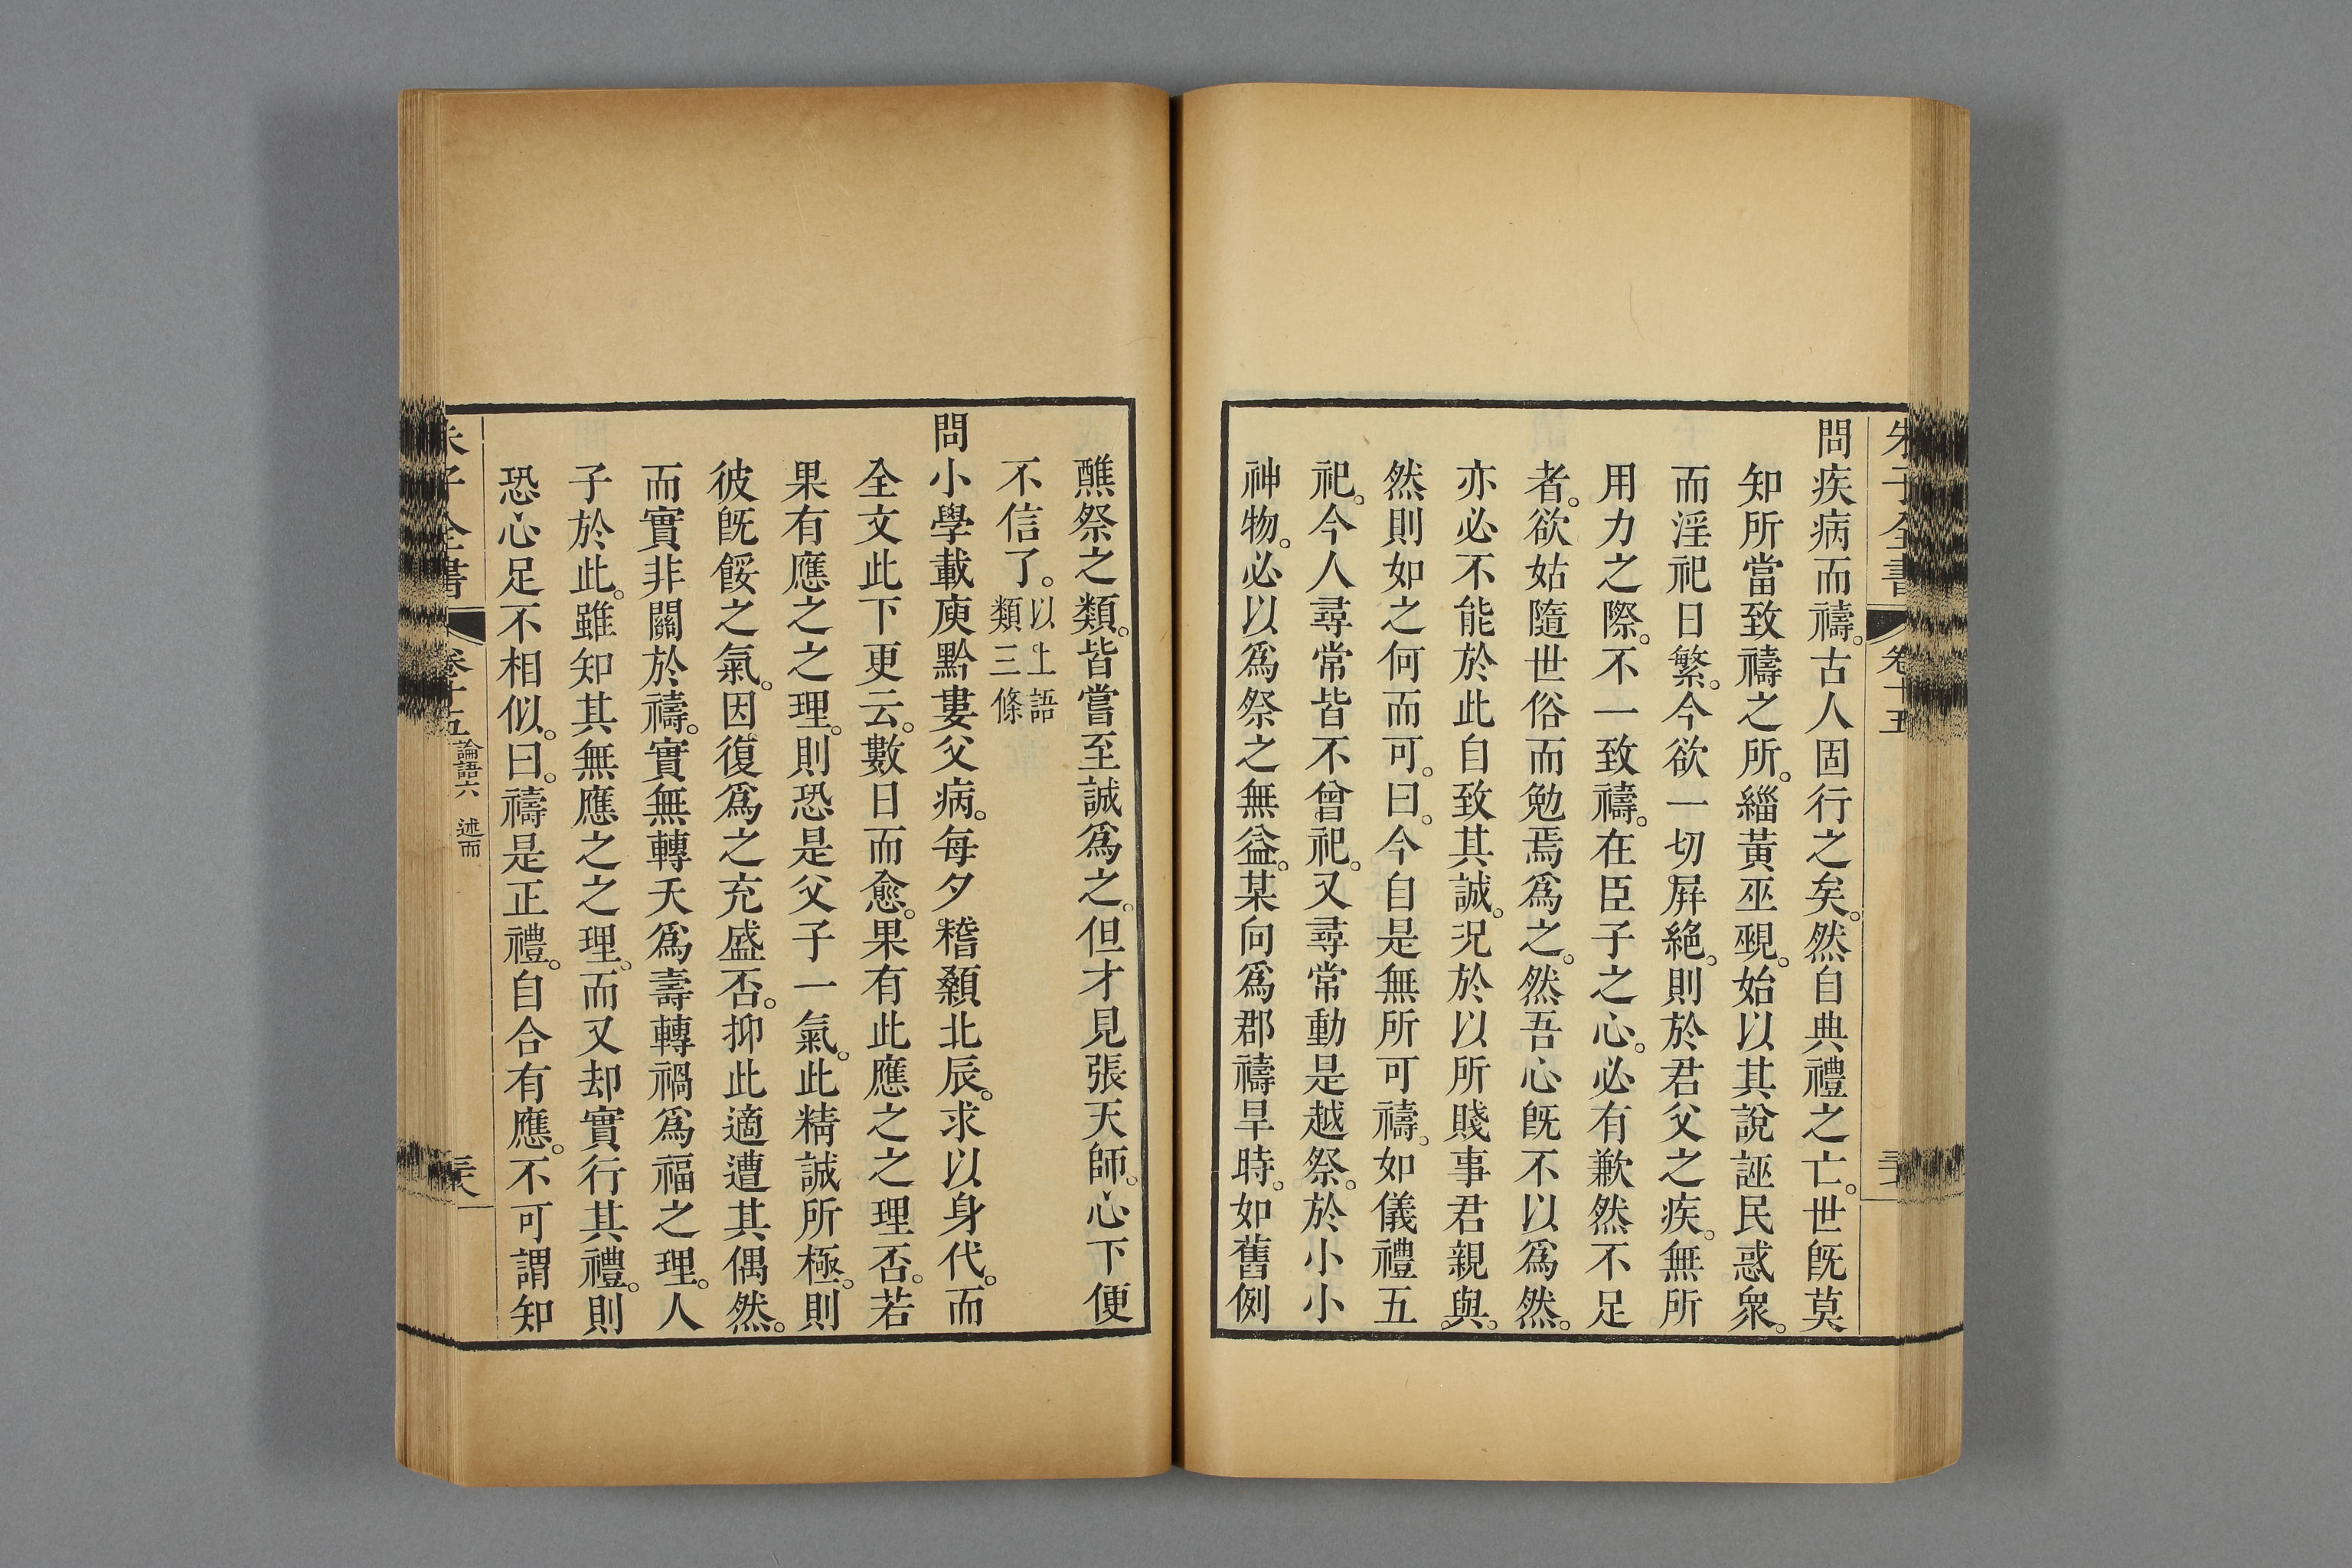 朱子全書 卷十五
問疾病而禱。古人固行之矣。然自典禮之亡。世旣莫
知所當致禱之所。緇黃巫覡。始以其說誣民惑衆。
而淫祀日繁。今欲一切屛絶。則於君父之疾。無所
用力之際。不一致禱。在臣子之心。必有歉然不足
者。欲姑隨世俗而勉焉爲之。然吾心旣不以爲然。
亦必不能於此自致其誠。況於以所賤事君親與。
然則如之何而可。曰。今自是無所可禱。如儀禮五
祀。今人尋常皆不曾祀。又尋常動是越祭。於小小
神物。必以爲祭之無益。某向爲郡禱旱時。如舊例
醮祭之類。皆嘗至誠爲之。但才見張天師。心下便
不信了。以上語類三條
問小學載庾黔婁父病。每夕稽顙北辰。求以身代。而
全文此下更云。數日而愈。果有此應之之理否。若
果有應之之理。則恐是父子一氣。此精誠所極。則
彼旣餒之氣。因復爲之充盛否。抑此適遭其偶然。
而實非關於禱。實無轉夭爲壽轉禍爲福之理。人
子於此。雖知其無應之之理。而又却實行其禮。則
恐心足不相似。曰。禱是正禮。自合有應。不可謂知
朱子全書 卷十五 論語六 述而 三六